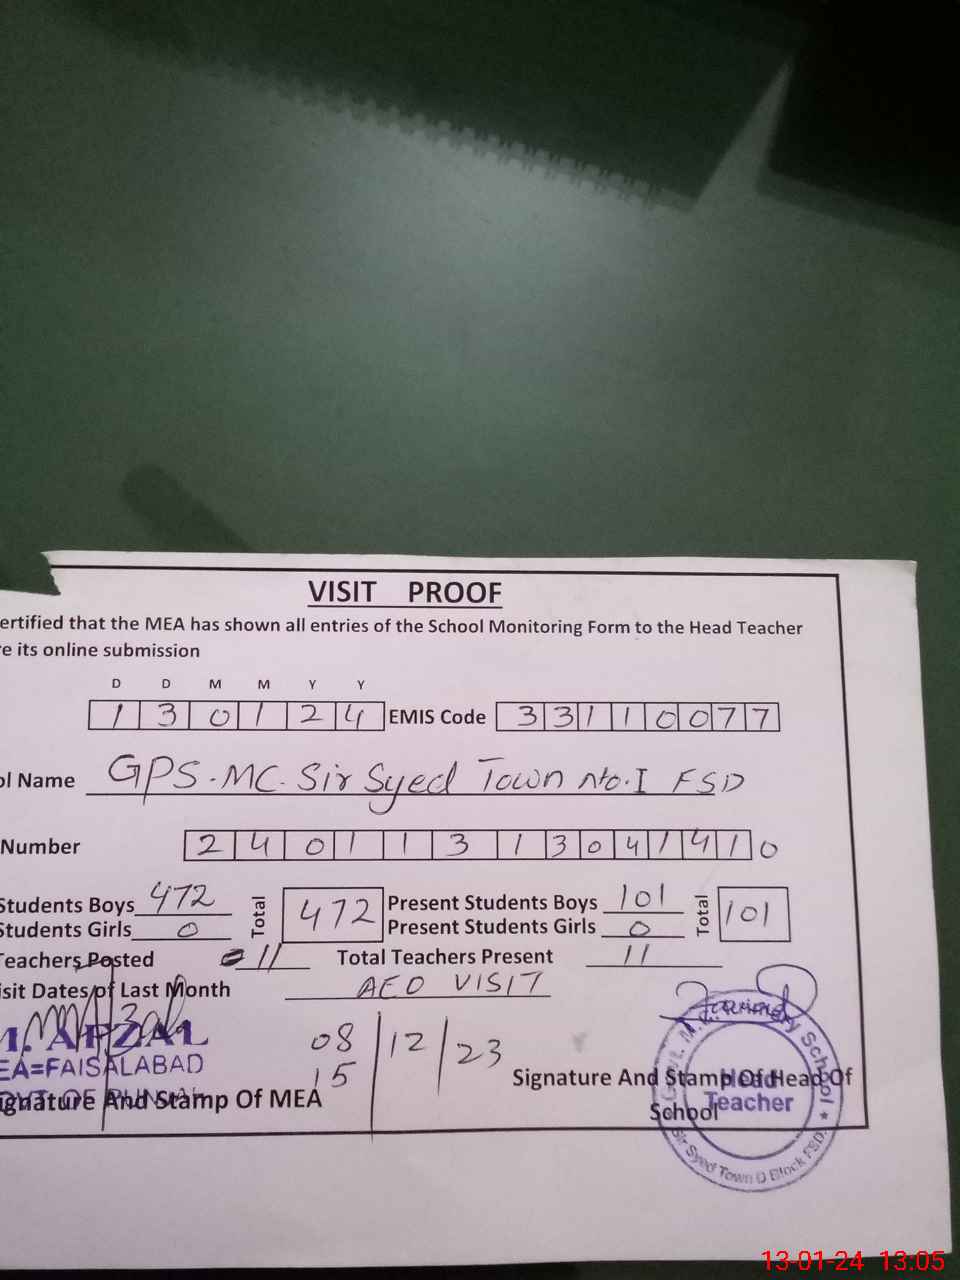 VISIT PROOF
ertified that the MEA has shown all entries of the School Monitoring Form to the Head Teacher
re its online submission
D D M M Y Y
1 3 0 1 2 4 EMIS Code 3 3 1 1 0 0 7 7
ol Name GPS. MC. Sir Syed Town No. I FSD
Number 2 4 0 1 1 3 1 3 0 4 1 4 1 0
Students Boys 472 Total 472 Present Students Boys 101 Total 101
Students Girls 0 Present Students Girls 0
Teachers Posted 11 Total Teachers Present 11
isit Dates of Last Month AEO VISIT
08 / 12 / 23
15
M. AFZAL
EA=FAISALABAD
ignature And Stamp Of MEA
Signature And Stamp Of Head Of
School
Head
Teacher
Sir Syed Town D Block FSD.
13-01-24 13:05